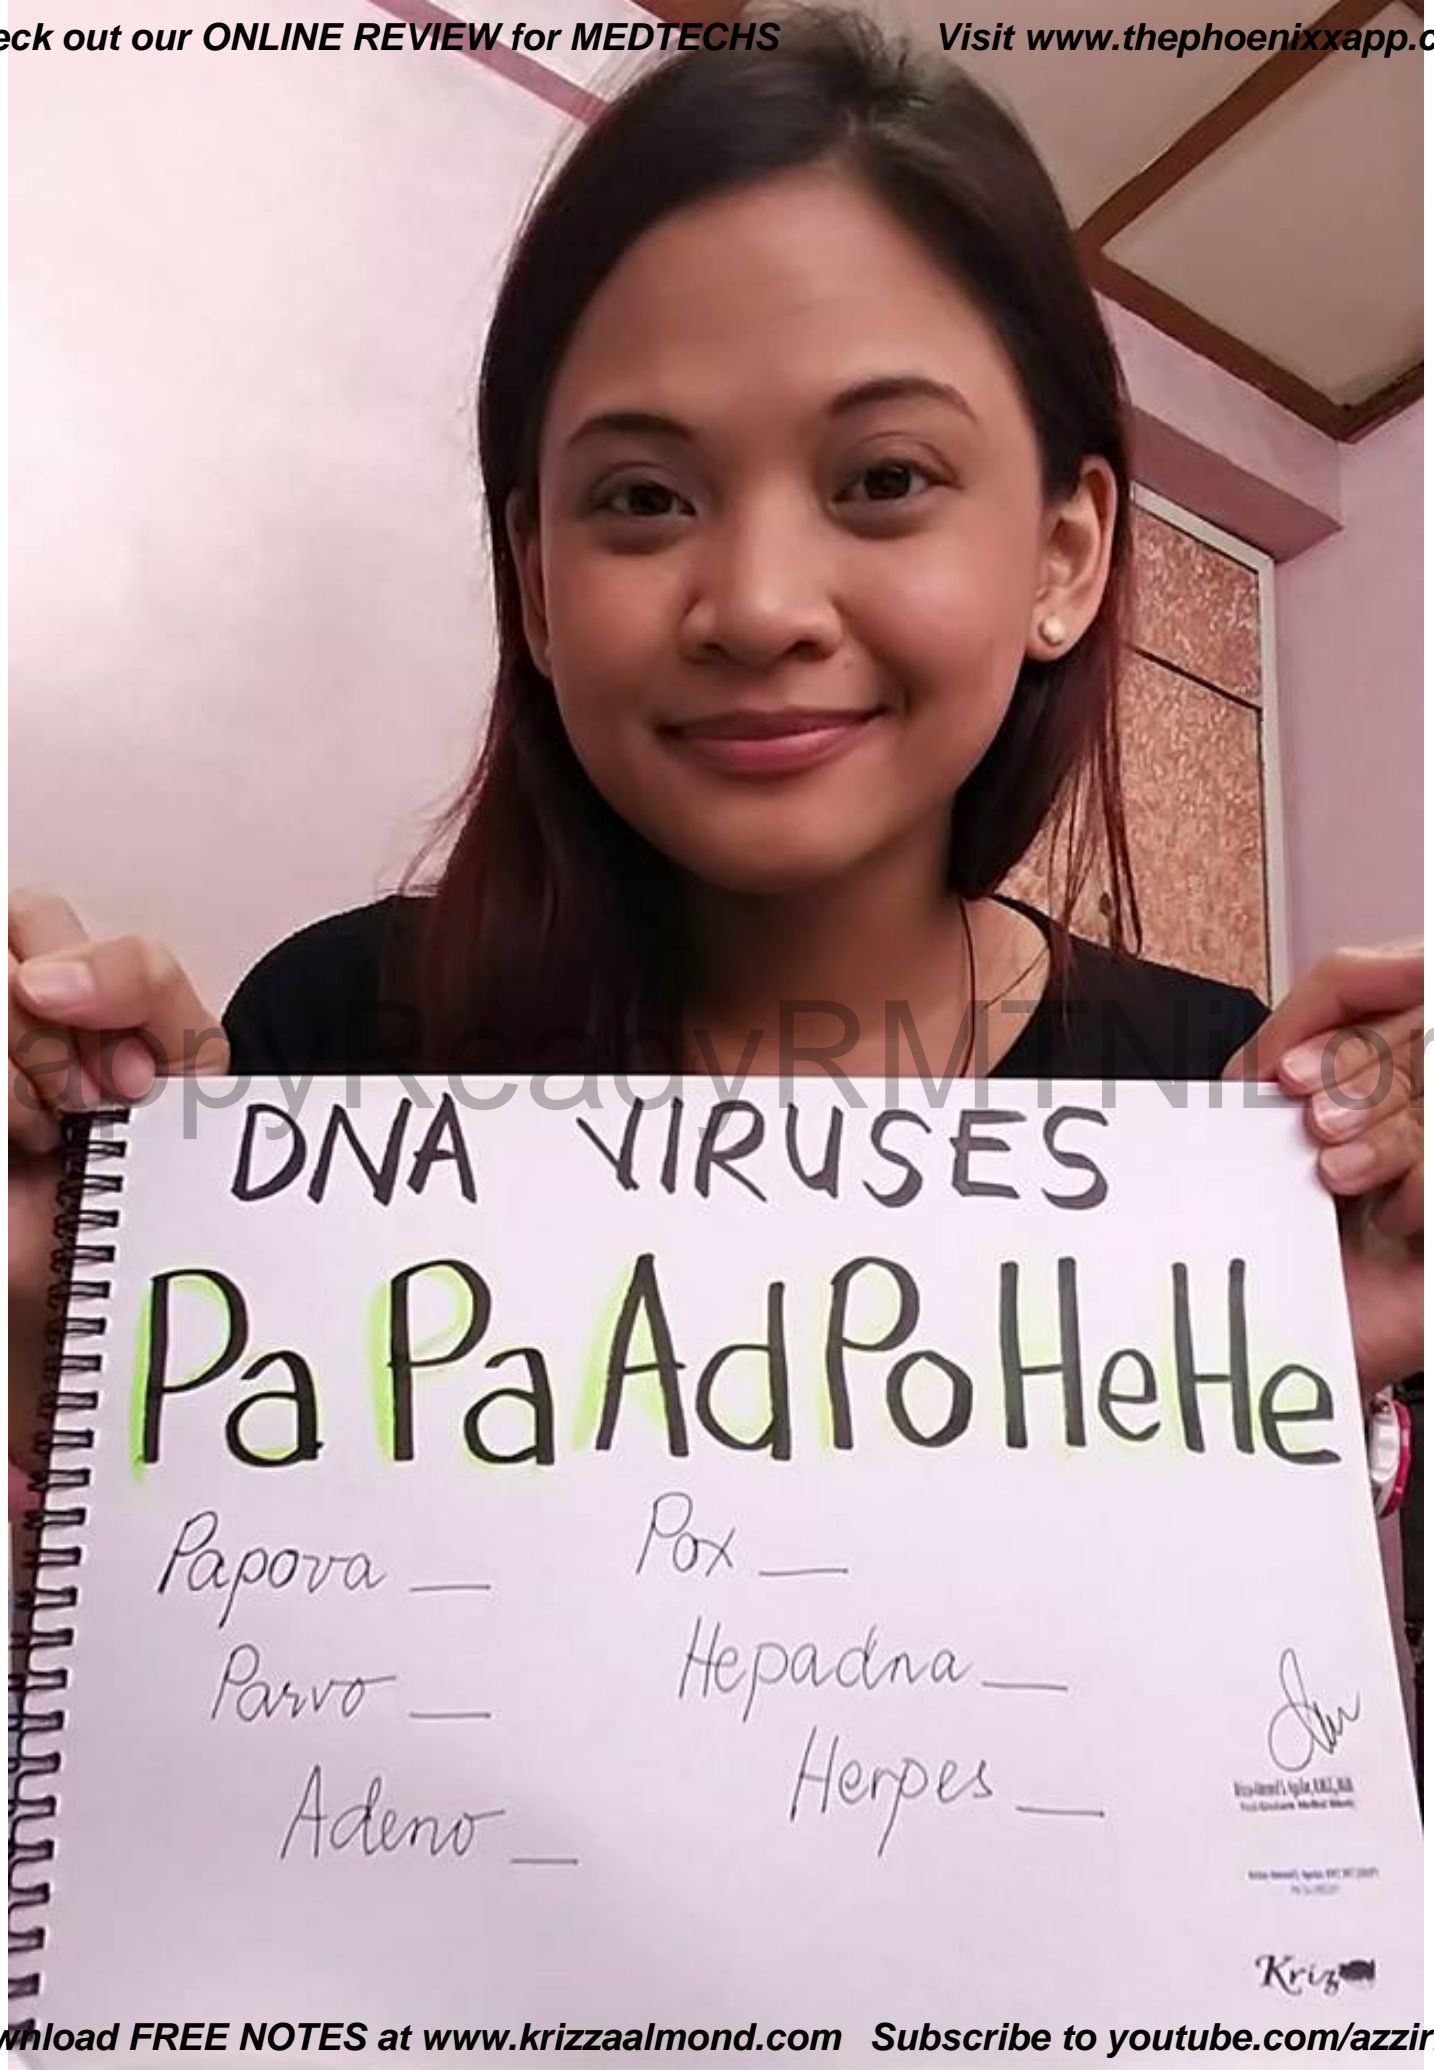 eck out our ONLINE REVIEW for MEDTECHS Visit www.thephoenixxapp.c
appyReadyRMTNiLor
DNA VIRUSES
PaPaAdPoHeHe
Papova __ Pox __
Parvo __ Hepadna __
Adeno __ Herpes __
Kriz
wnload FREE NOTES at www.krizzaalmond.com Subscribe to youtube.com/azzir